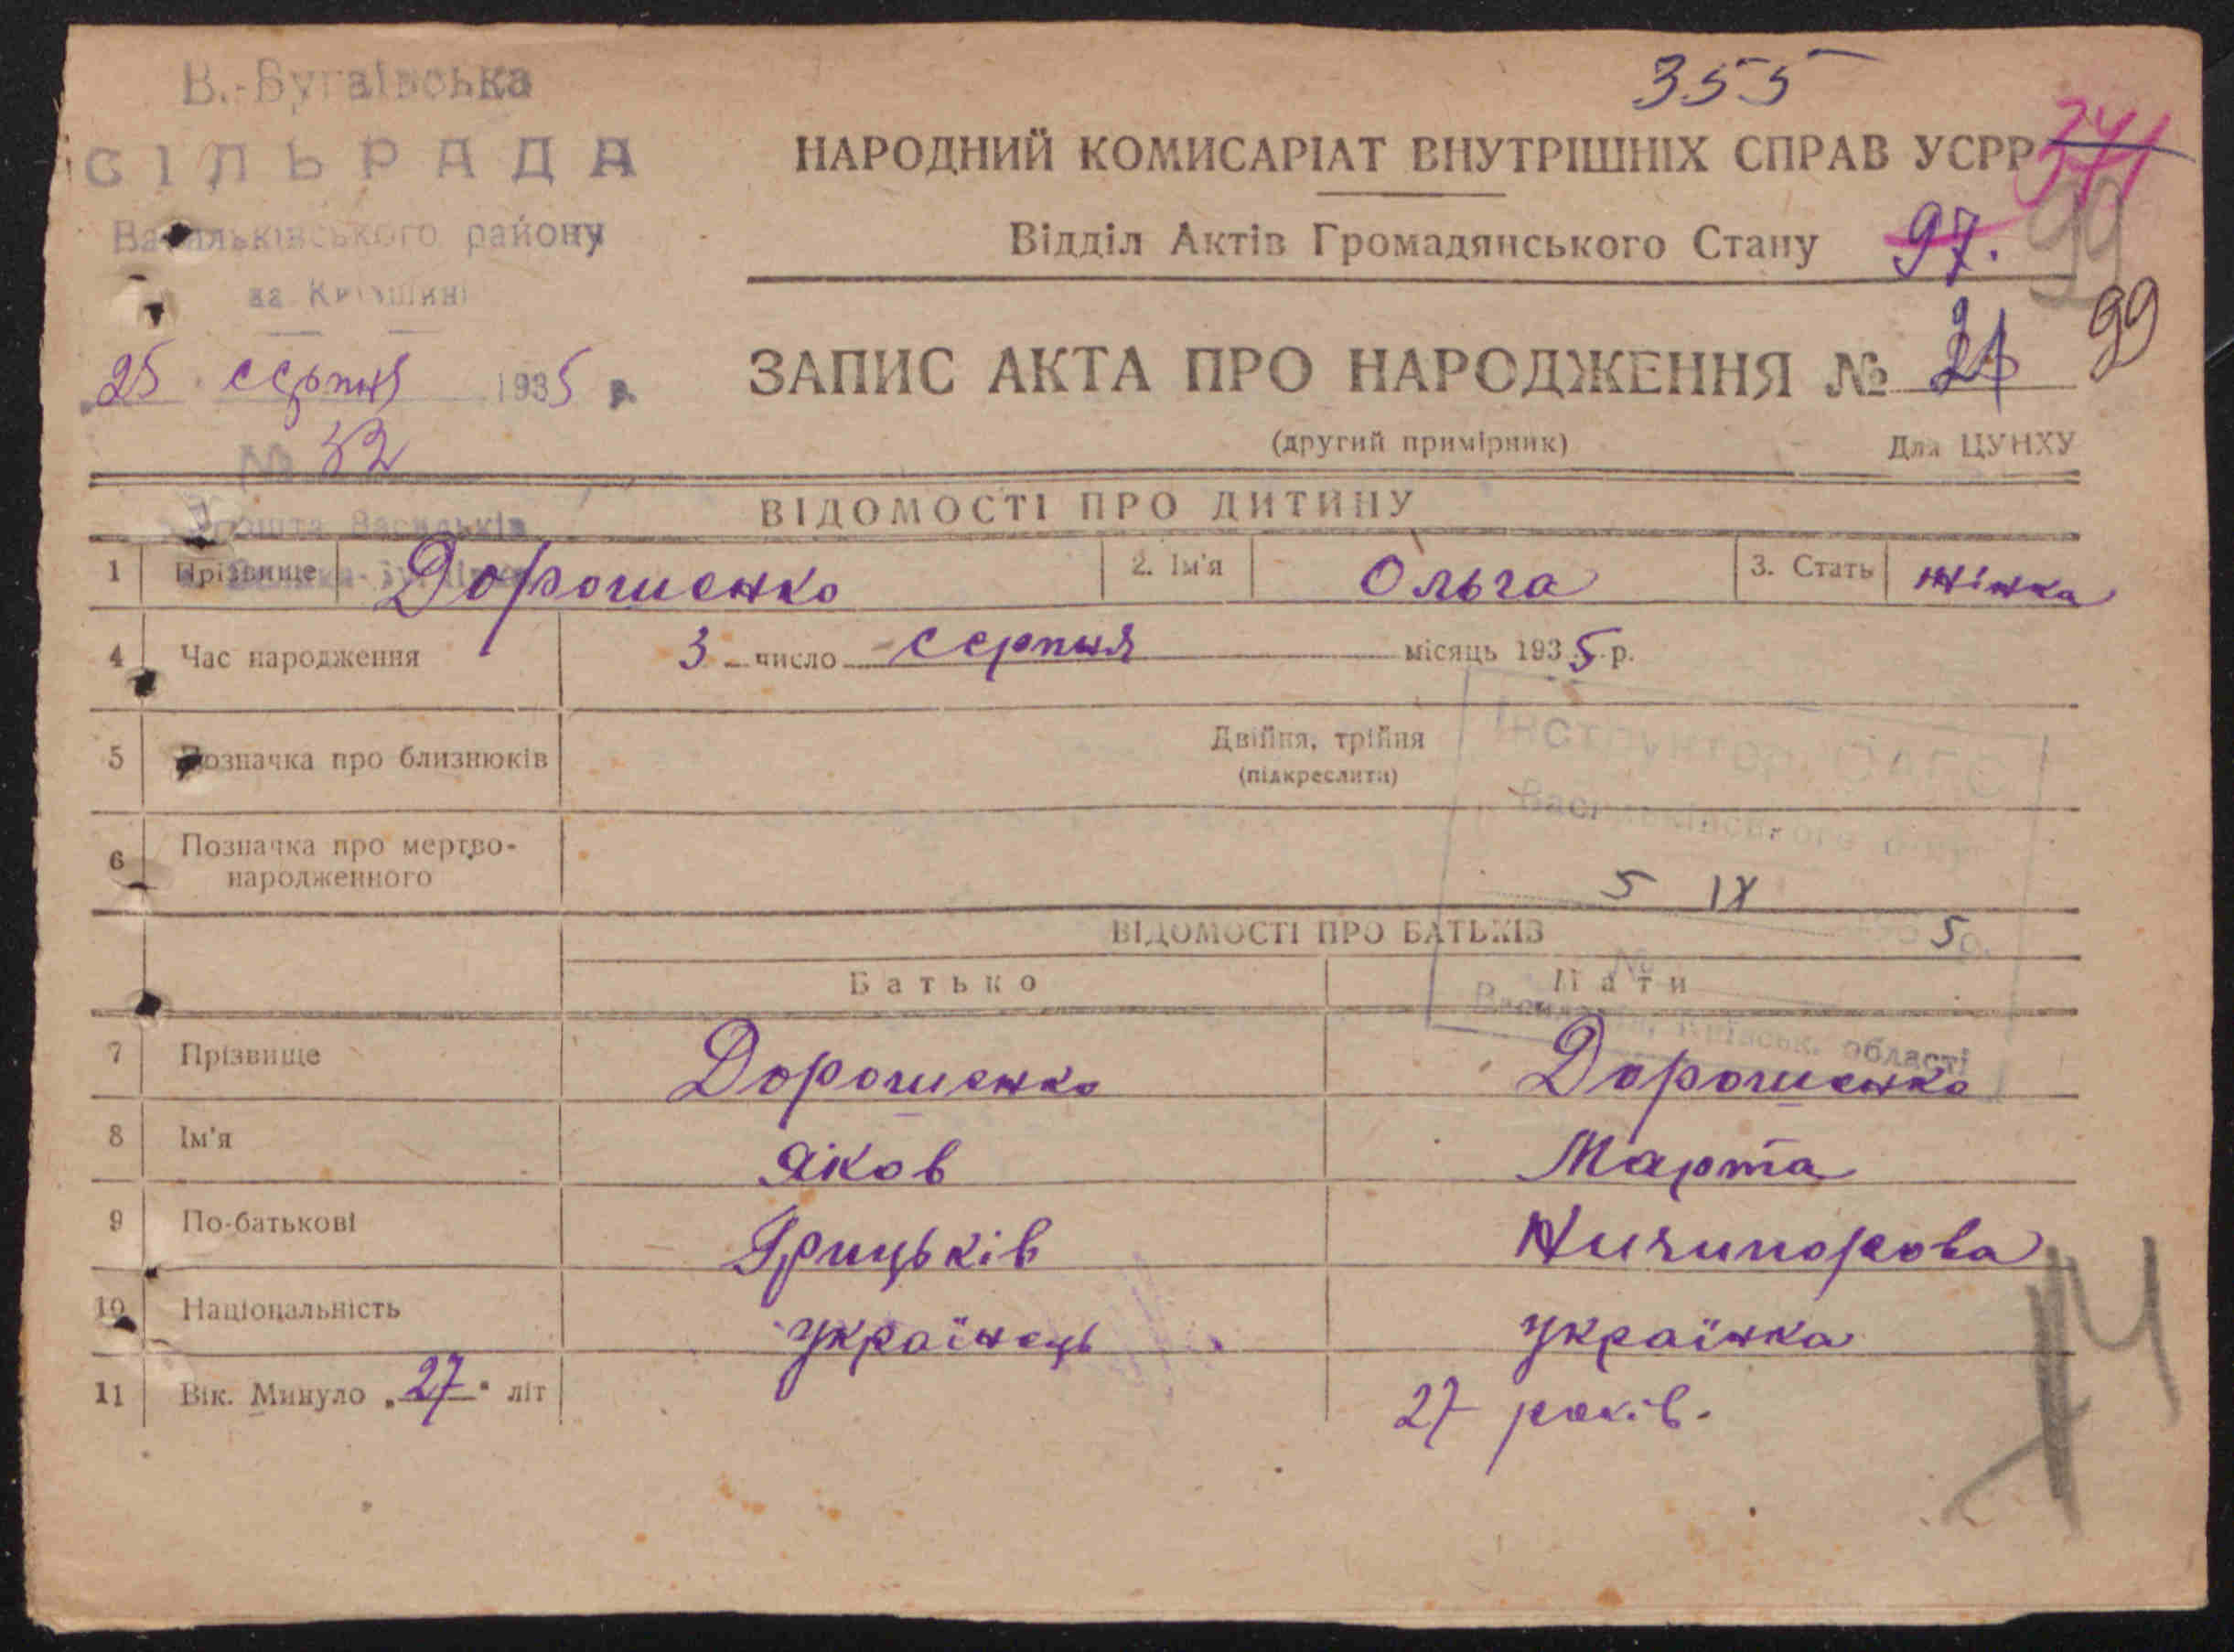 355
В.-Бугаївська
СІЛЬРАДА
Васильківського району
на Київщині
25 серпня 1935 р.
№ 32
Пошта Васильків
НАРОДНИЙ КОМИСАРІАТ ВНУТРІШНІХ СПРАВ УСРР 371
Відділ Актів Громадянського Стану 97. 99
ЗАПИС АКТА ПРО НАРОДЖЕННЯ № 99
(другий примірник) Для ЦУНХУ
ВІДОМОСТІ ПРО ДИТИНУ
1 Прізвище Дорошенко 2. Ім'я Ольга 3. Стать жінка
4 Час народження 3 число серпня місяць 1935 р.
5 Позначка про близнюків Двійня, трійня
(підкреслити)
Інструктор ОАГС
Васильківського р-ну
6 Позначка про мертво-
народженного
5 IX
5 р.
№
Васильків, Київськ. області
ВІДОМОСТІ ПРО БАТЬКІВ
Батько Мати
7 Прізвище Дорошенко Дорошенко
8 Ім'я Яков Марта
9 По-батькові Грицьків Ничипорова
10 Національність українець українка
11 Вік. Минуло „27" літ 27 років.